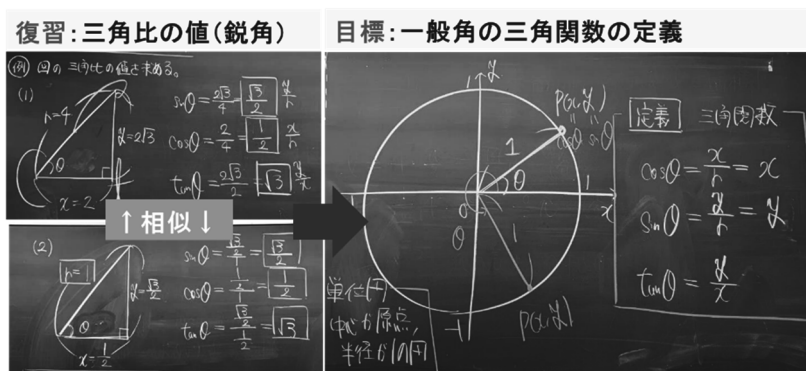 復習：三角比の値（鋭角）
(例) 図の三角比の値を求める。
(1)
r=4
y=2√3
x=2
θ
sinθ = 2√3/4 = √3/2 y/r
cosθ = 2/4 = 1/2 x/r
tanθ = 2√3/2 = √3 y/x
↑相似↓
(2)
r=1
y=√3/2
x=1/2
θ
sinθ = √3/2/1 = √3/2
cosθ = 1/2/1 = 1/2
tanθ = √3/2/1/2 = √3
目標：一般角の三角関数の定義
1
y
P(x,y)
cosθ sinθ
1
θ
1
x
0
θ
1
P(x,y)
-1
単位円
中心が原点,
半径が1の円
定義 三角関数
cosθ = x/r = x
sinθ = y/r = y
tanθ = y/x